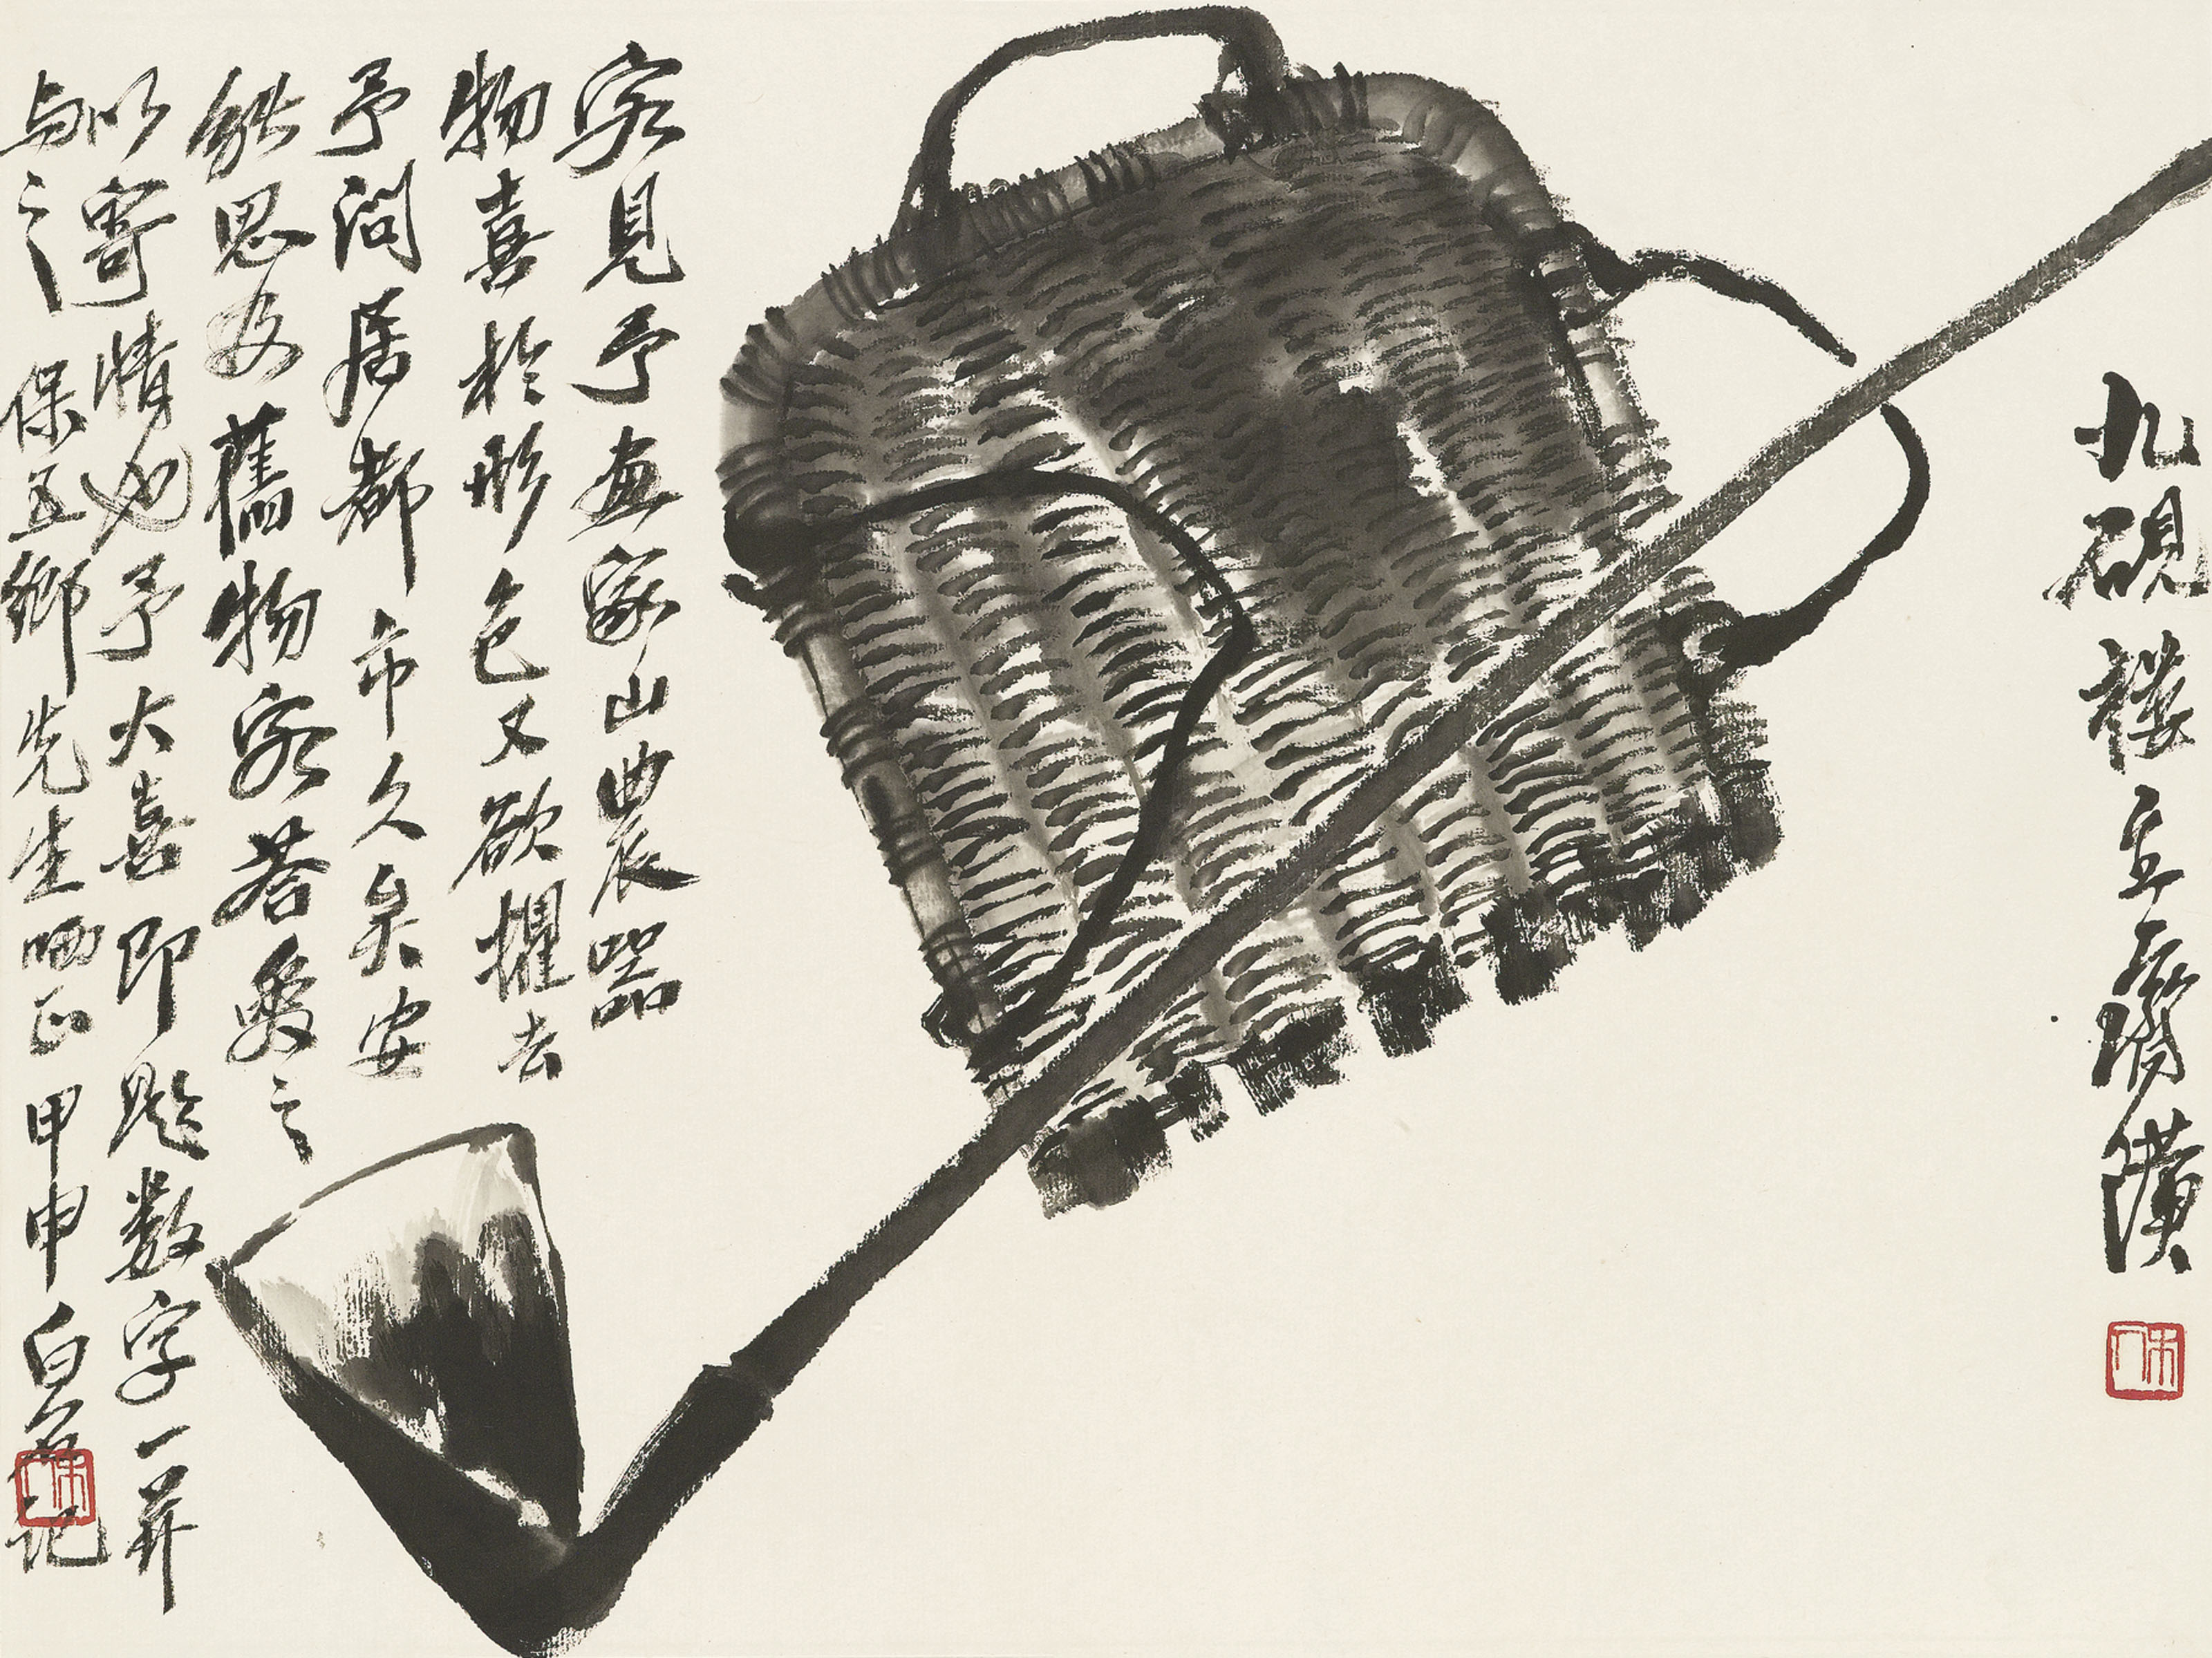 九硯樓主齊璜
木人
客見予畫家山農器
物喜於形色又欲攫去
予問居都市久矣安
能思及舊物客答愛之
以寄情也予大喜即題数字一并
与之 保五鄉先生哂正 甲申 白石記
木人